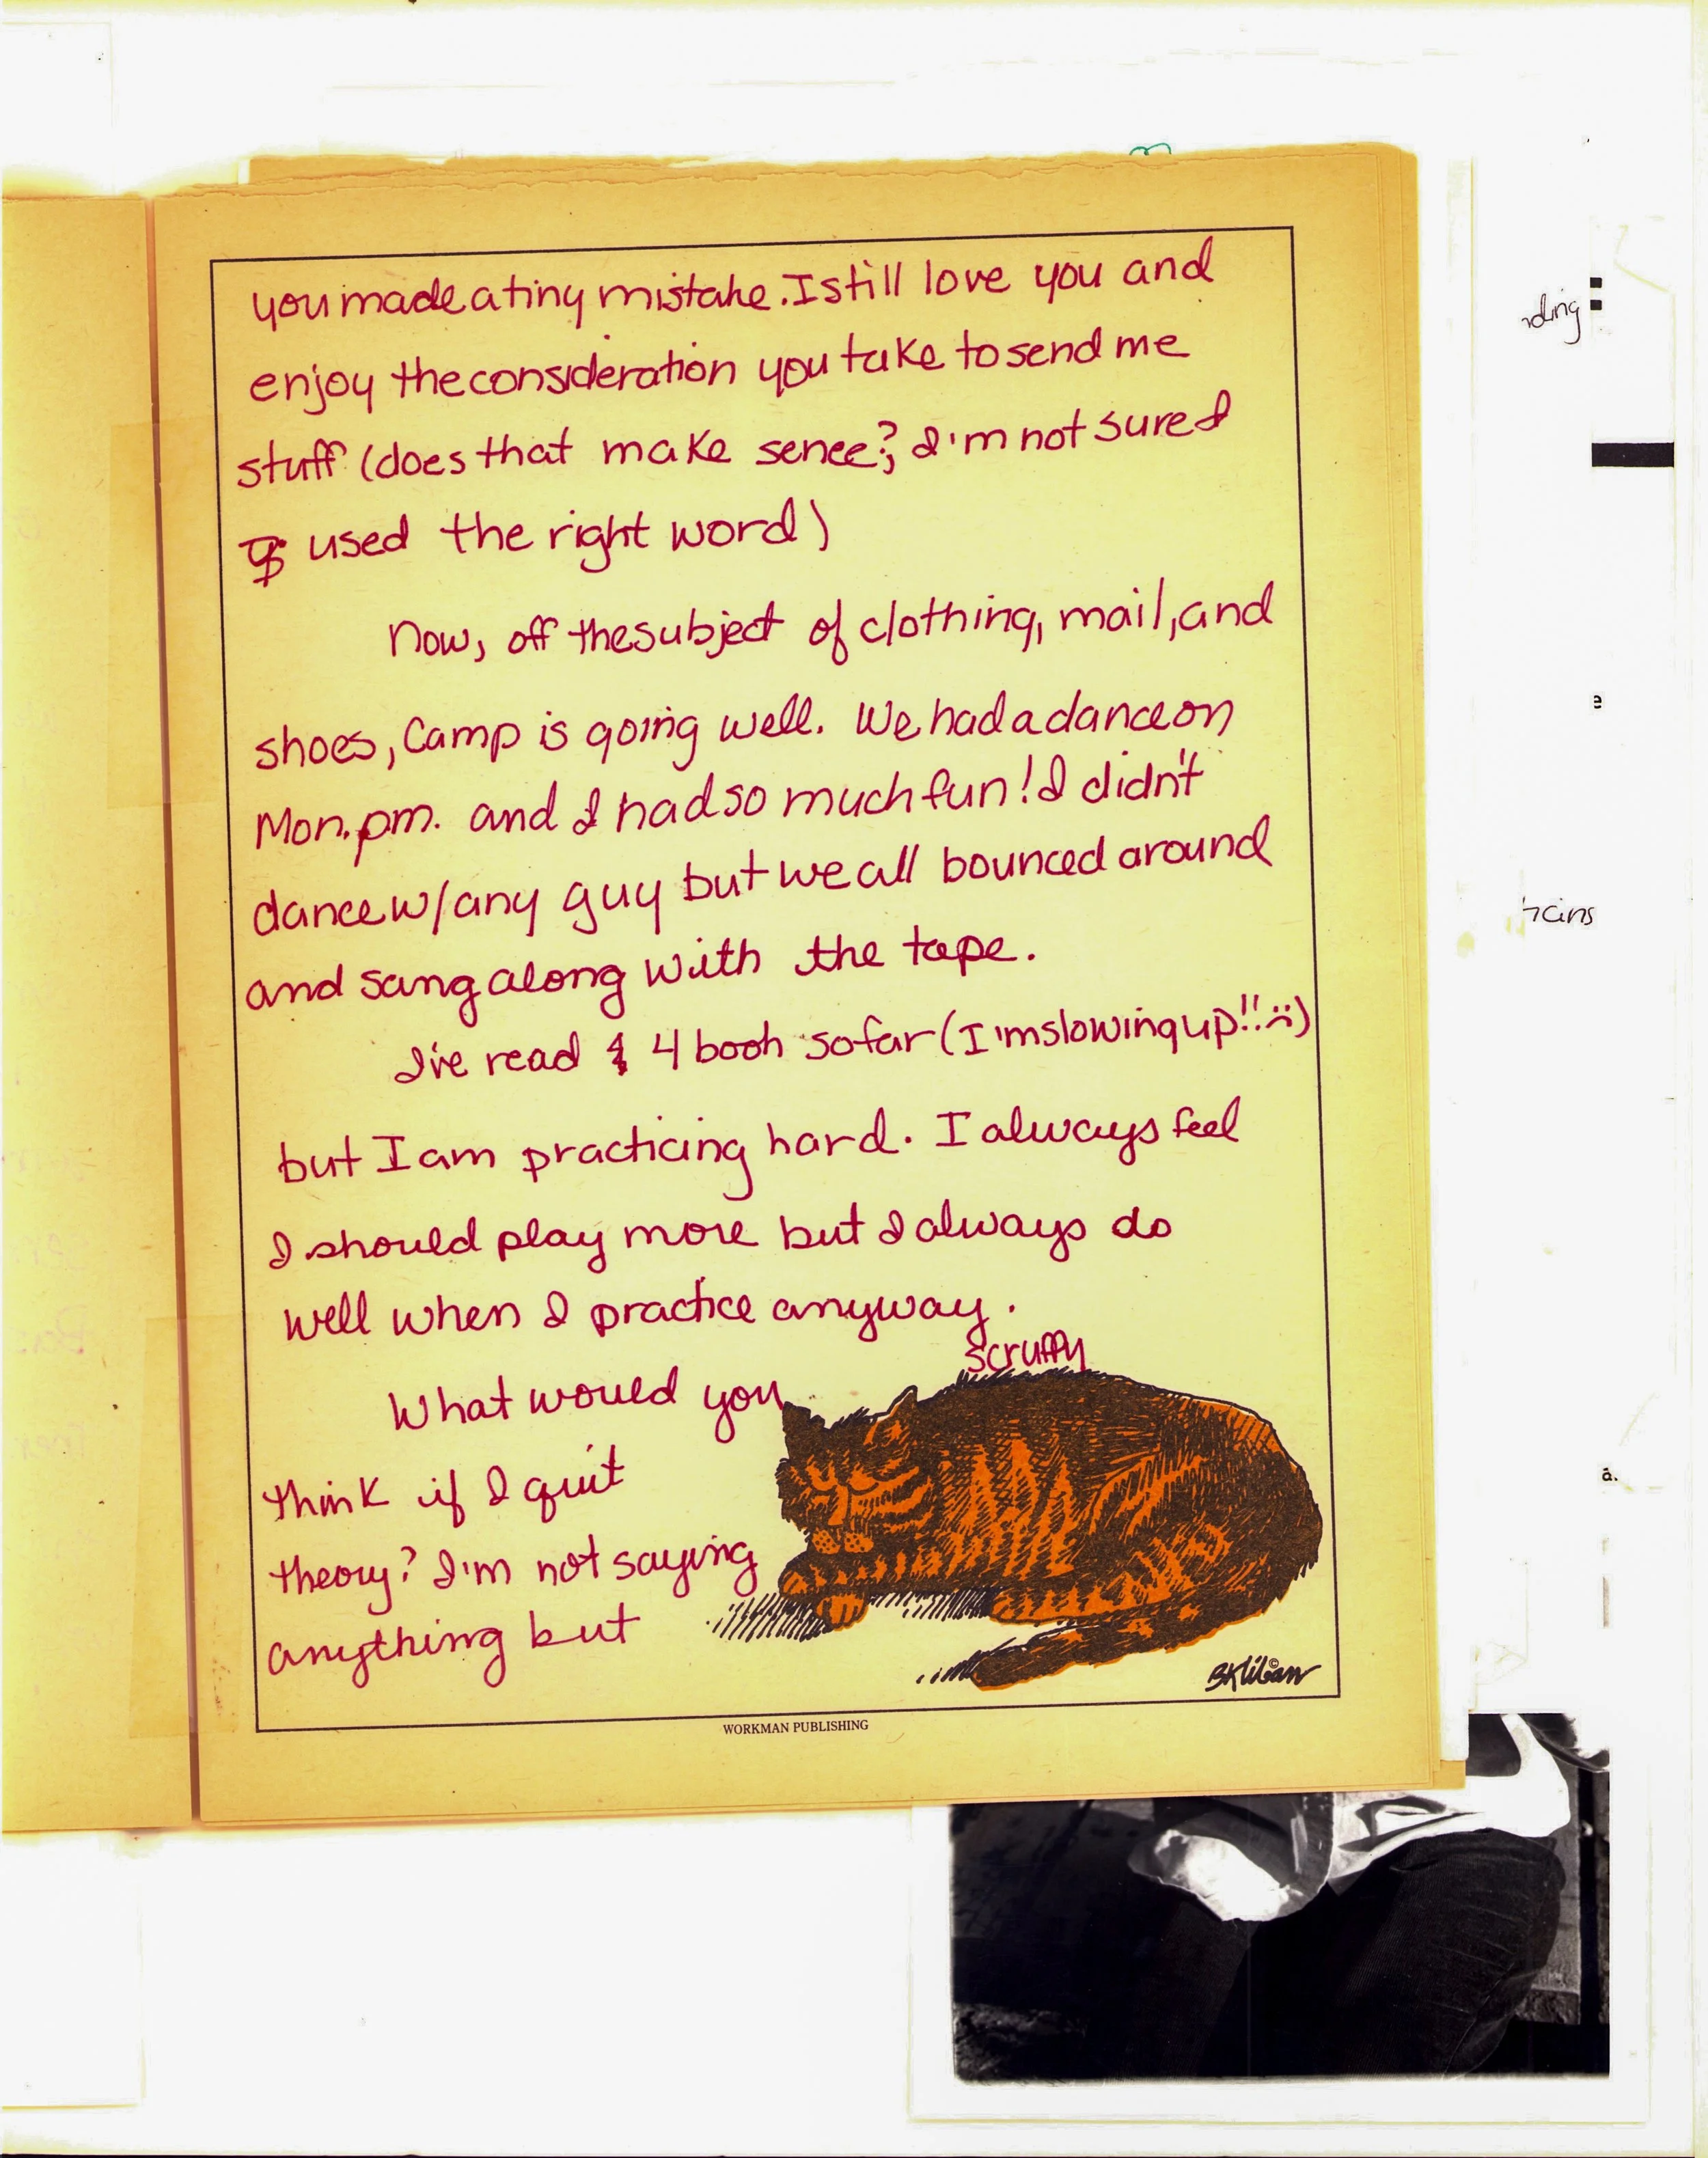 you made a tiny mistake. I still love you and
enjoy the consideration you take to send me
stuff (does that make sence?, I'm not sure I
used the right word)
Now, off the subject of clothing, mail, and
shoes, Camp is going well. We had a dance on
Mon. pm. and I had so much fun! I didn't
dance w/any guy but we all bounced around
and sang along with the tape.
I've read 4 book so far (I'm slowing up!! :()
but I am practicing hard. I always feel
I should play more but I always do
well when I practice anyway.
scruffy
What would you
think if I quit
theory? I'm not saying
anything but
BKliban ©
WORKMAN PUBLISHING
ding
e
a.